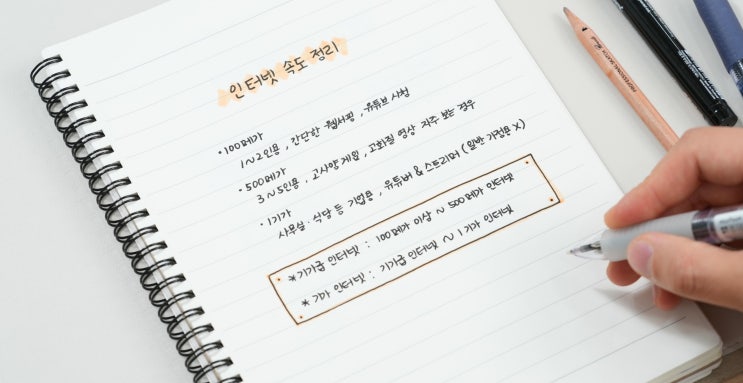 인터넷 속도 정리
• 100메가
1~2인용, 간단한 웹서핑, 유튜브 시청
• 500메가
3~5인용, 고사양 게임, 고화질 영상 자주 보는 경우
• 1기가
사무실·식당 등 기업용, 유튜버 & 스트리머 (일반 가정용 X)
* 기가급 인터넷 : 100메가 이상 ~ 500메가 인터넷
* 기가 인터넷 : 기가급 인터넷 ~ 1기가 인터넷